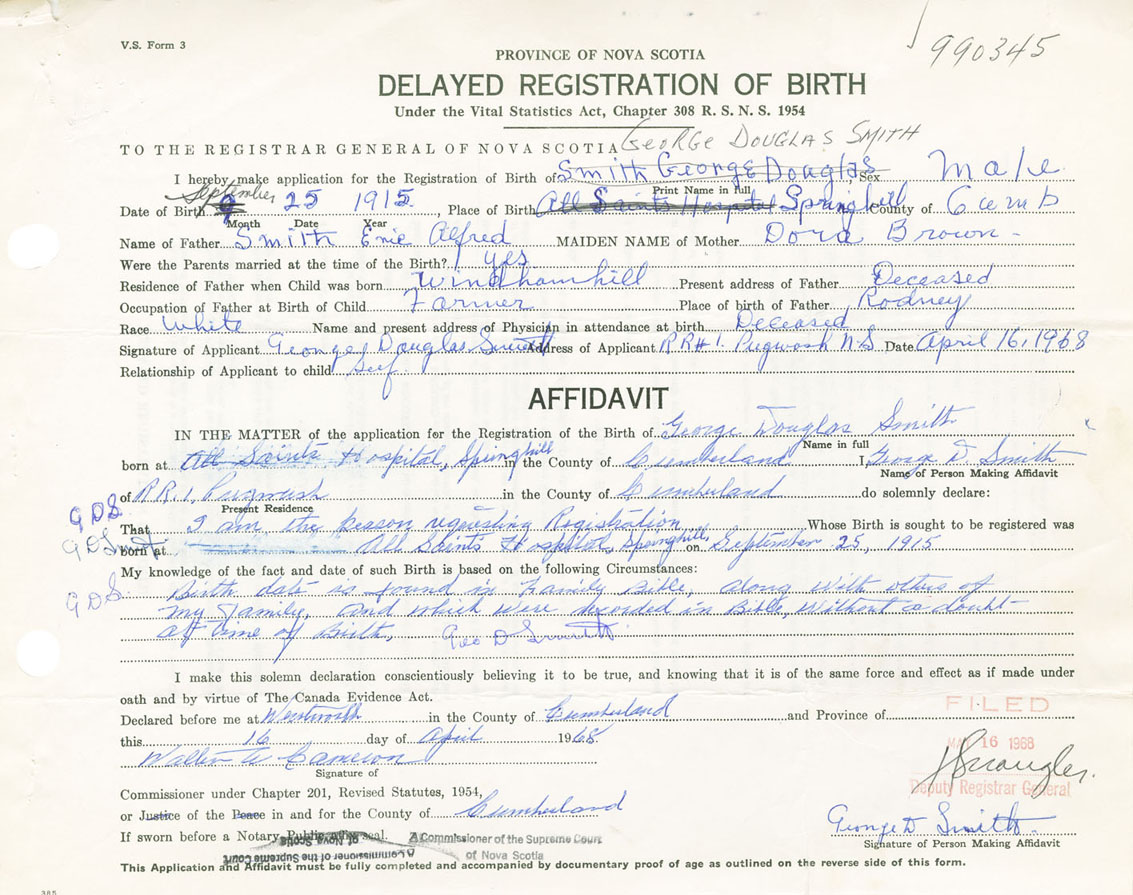 V.S. Form 3
990345
PROVINCE OF NOVA SCOTIA
DELAYED REGISTRATION OF BIRTH
Under the Vital Statistics Act, Chapter 308 R. S. N. S. 1954
GEORGE DOUGLAS SMITH
TO THE REGISTRAR GENERAL OF NOVA SCOTIA
I hereby make application for the Registration of Birth of Smith George Douglas, Sex Male
Print Name in full
September
Date of Birth 9 25 1915, Place of Birth All Saints Hospital Springhill County of Cumb
Month Date Year
Name of Father Smith Eric Alfred MAIDEN NAME of Mother Dora Brown -
Were the Parents married at the time of the Birth? yes
Residence of Father when Child was born Windhamhill Present address of Father Deceased
Occupation of Father at Birth of Child Farmer Place of birth of Father Rodney
Race White Name and present address of Physician in attendance at birth Deceased
Signature of Applicant George Douglas Smith Address of Applicant RR#1. Pugwash N.S. Date April 16, 1968
Relationship of Applicant to child Self.
AFFIDAVIT
IN THE MATTER of the application for the Registration of the Birth of George Douglas Smith
Name in full
born at All Saints Hospital, Springhill in the County of Cumberland I, George D. Smith
Name of Person Making Affidavit
of R.R.1, Pugwash in the County of Cumberland do solemnly declare:
Present Residence
G D S.
That I am the person requesting Registration Whose Birth is sought to be registered was
G D S.
born at All Saints Hospital, Springhill, on September 25, 1915
My knowledge of the fact and date of such Birth is based on the following Circumstances:
G D S.
Birth date is found in Family Bible, along with others of
my family, and which were recorded in Bible, without a doubt-
at time of Birth, Geo D Smith
I make this solemn declaration conscientiously believing it to be true, and knowing that it is of the same force and effect as if made under
oath and by virtue of The Canada Evidence Act.
Declared before me at Wentworth in the County of Cumberland and Province of
FILED
this 16 day of April 1968.
MAY 16 1968
Deputy Registrar General
Cameron
Signature of
Commissioner under Chapter 201, Revised Statutes, 1954,
or Justice of the Peace in and for the County of Cumberland
George D Smith
Signature of Person Making Affidavit
If sworn before a Notary Public affix seal.
A Commissioner of the Supreme Court
of Nova Scotia
A Commissioner of the Supreme Court
of Nova Scotia
This Application and Affidavit must be fully completed and accompanied by documentary proof of age as outlined on the reverse side of this form.
385